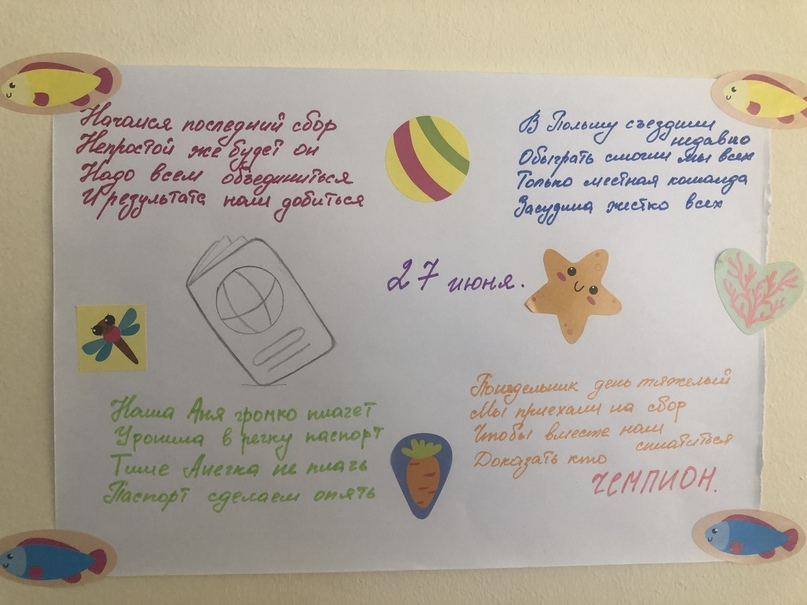 Начался последний сбор
Непростой же будет он
Надо всем объединиться
И результата нам добиться
В Польшу съездили
недавно
Обыграть смогли мы всех
Только местная команда
Засудила жестко всех
27 июня.
Наша Аня громко плачет
Уронила в речку паспорт
Тише Анечка не плачь
Паспорт сделаем опять
Понедельник день тяжелый
Мы приехали на сбор
Чтобы вместе нам
сплотиться
Доказать кто
ЧЕМПИОН.